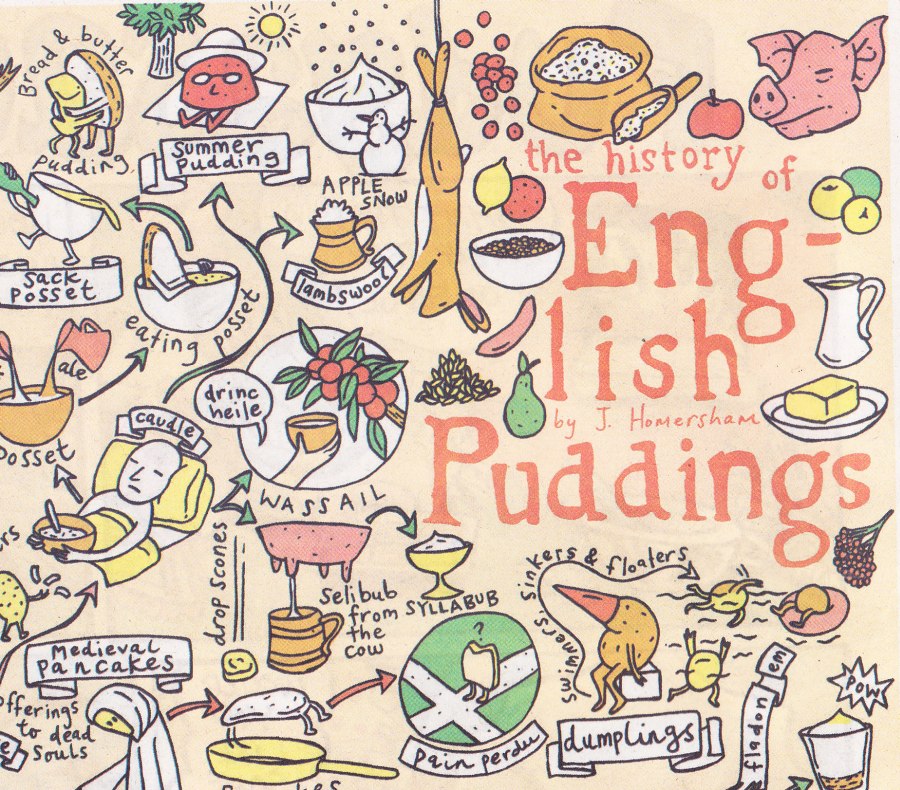 the history
of
Eng-
lish
by J. Homersham
Puddings
Bread & butter
pudding
Summer
Pudding
APPLE
SNOW
lambswool
Sack
posset
eating posset
ale
posset
caudle
drinc
heile
WASSAIL
drop scones
Selibub
from
the
cow
SYLLABUB
swimmers, sinkers & floaters
Medieval
pancakes
offerings
to dead
souls
?
pain perdu
dumplings
fladon
em
POW